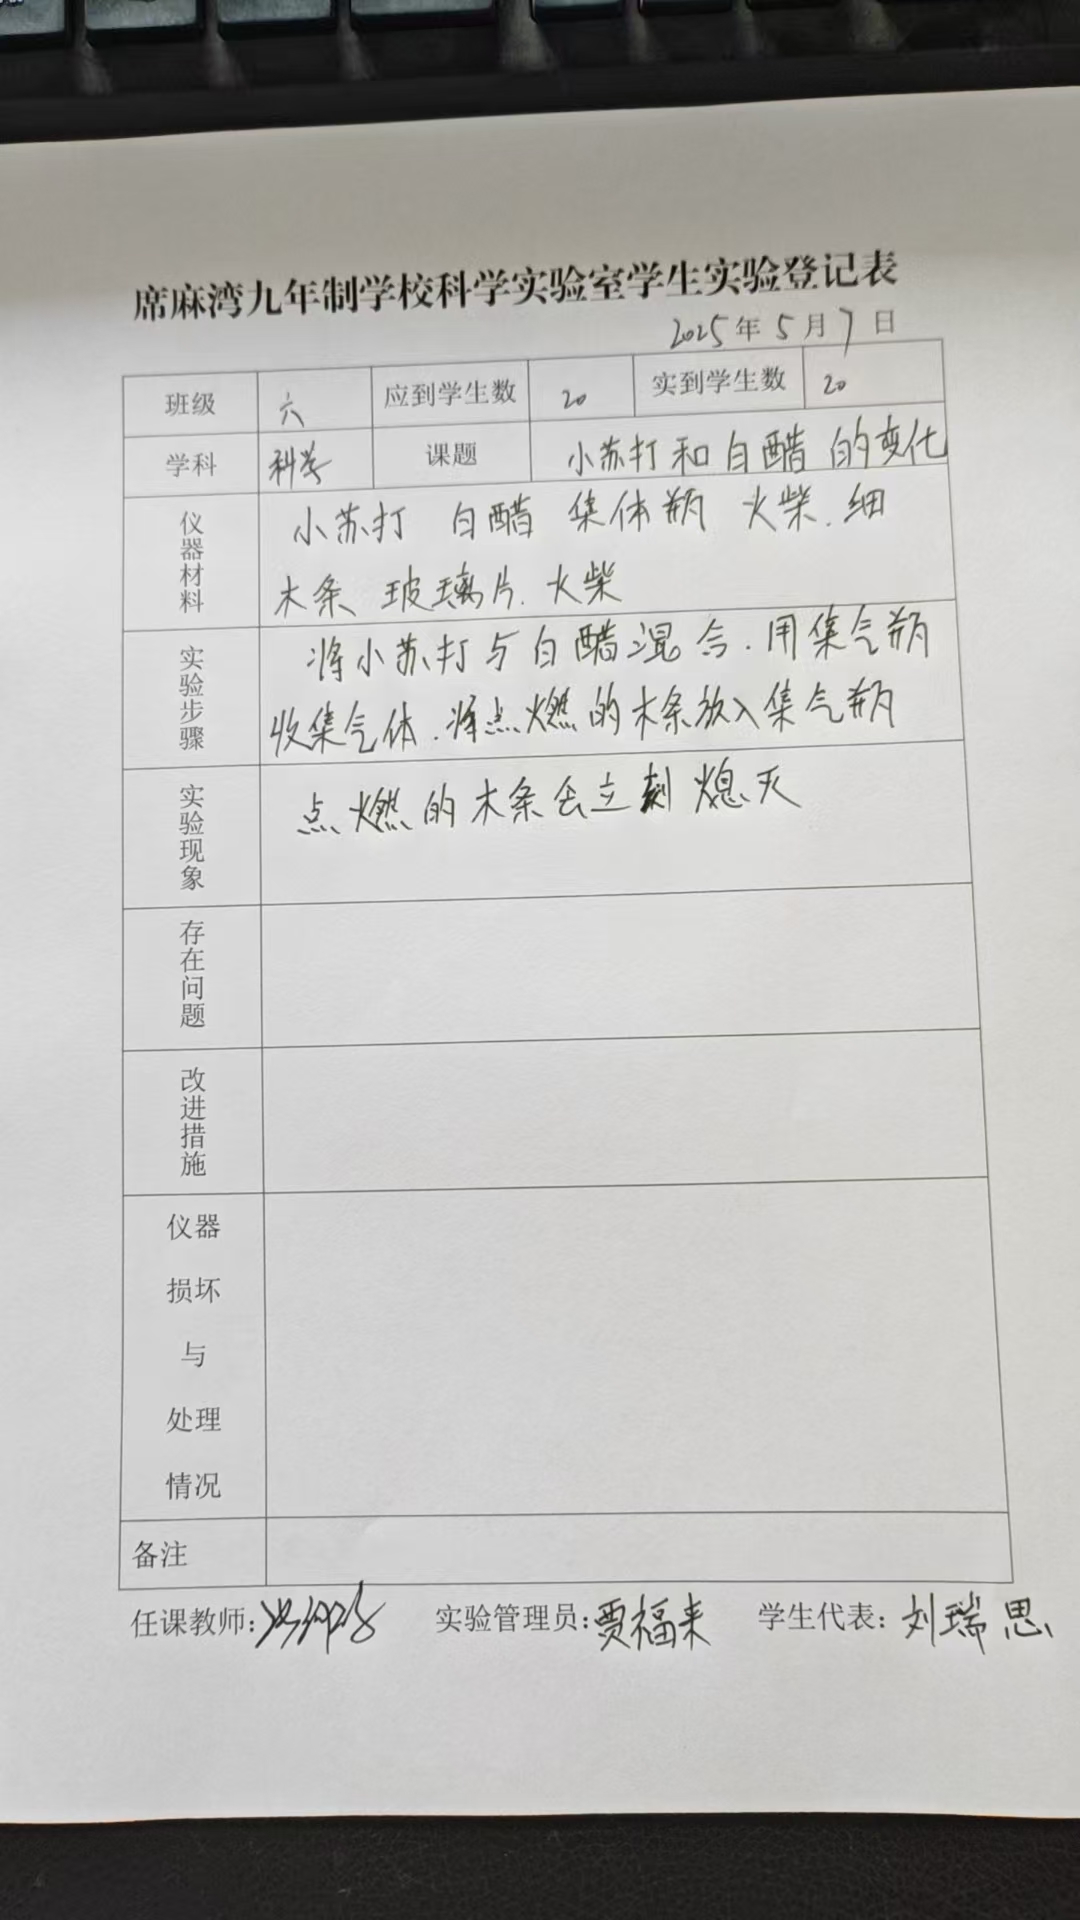 席麻湾九年制学校科学实验室学生实验登记表
2025年5月7日
班级 六 应到学生数 20 实到学生数 20
学科 科学 课题 小苏打和白醋的变化
仪器材料 小苏打 白醋 集体瓶 火柴.细
木条 玻璃片.火柴
实验步骤 将小苏打与白醋混合.用集气瓶
收集气体.将点燃的木条放入集气瓶
实验现象 点燃的木条会立刻熄灭
存在问题
改进措施
仪器
损坏
与
处理
情况
备注
任课教师: 实验管理员:贾福来 学生代表:刘瑞思